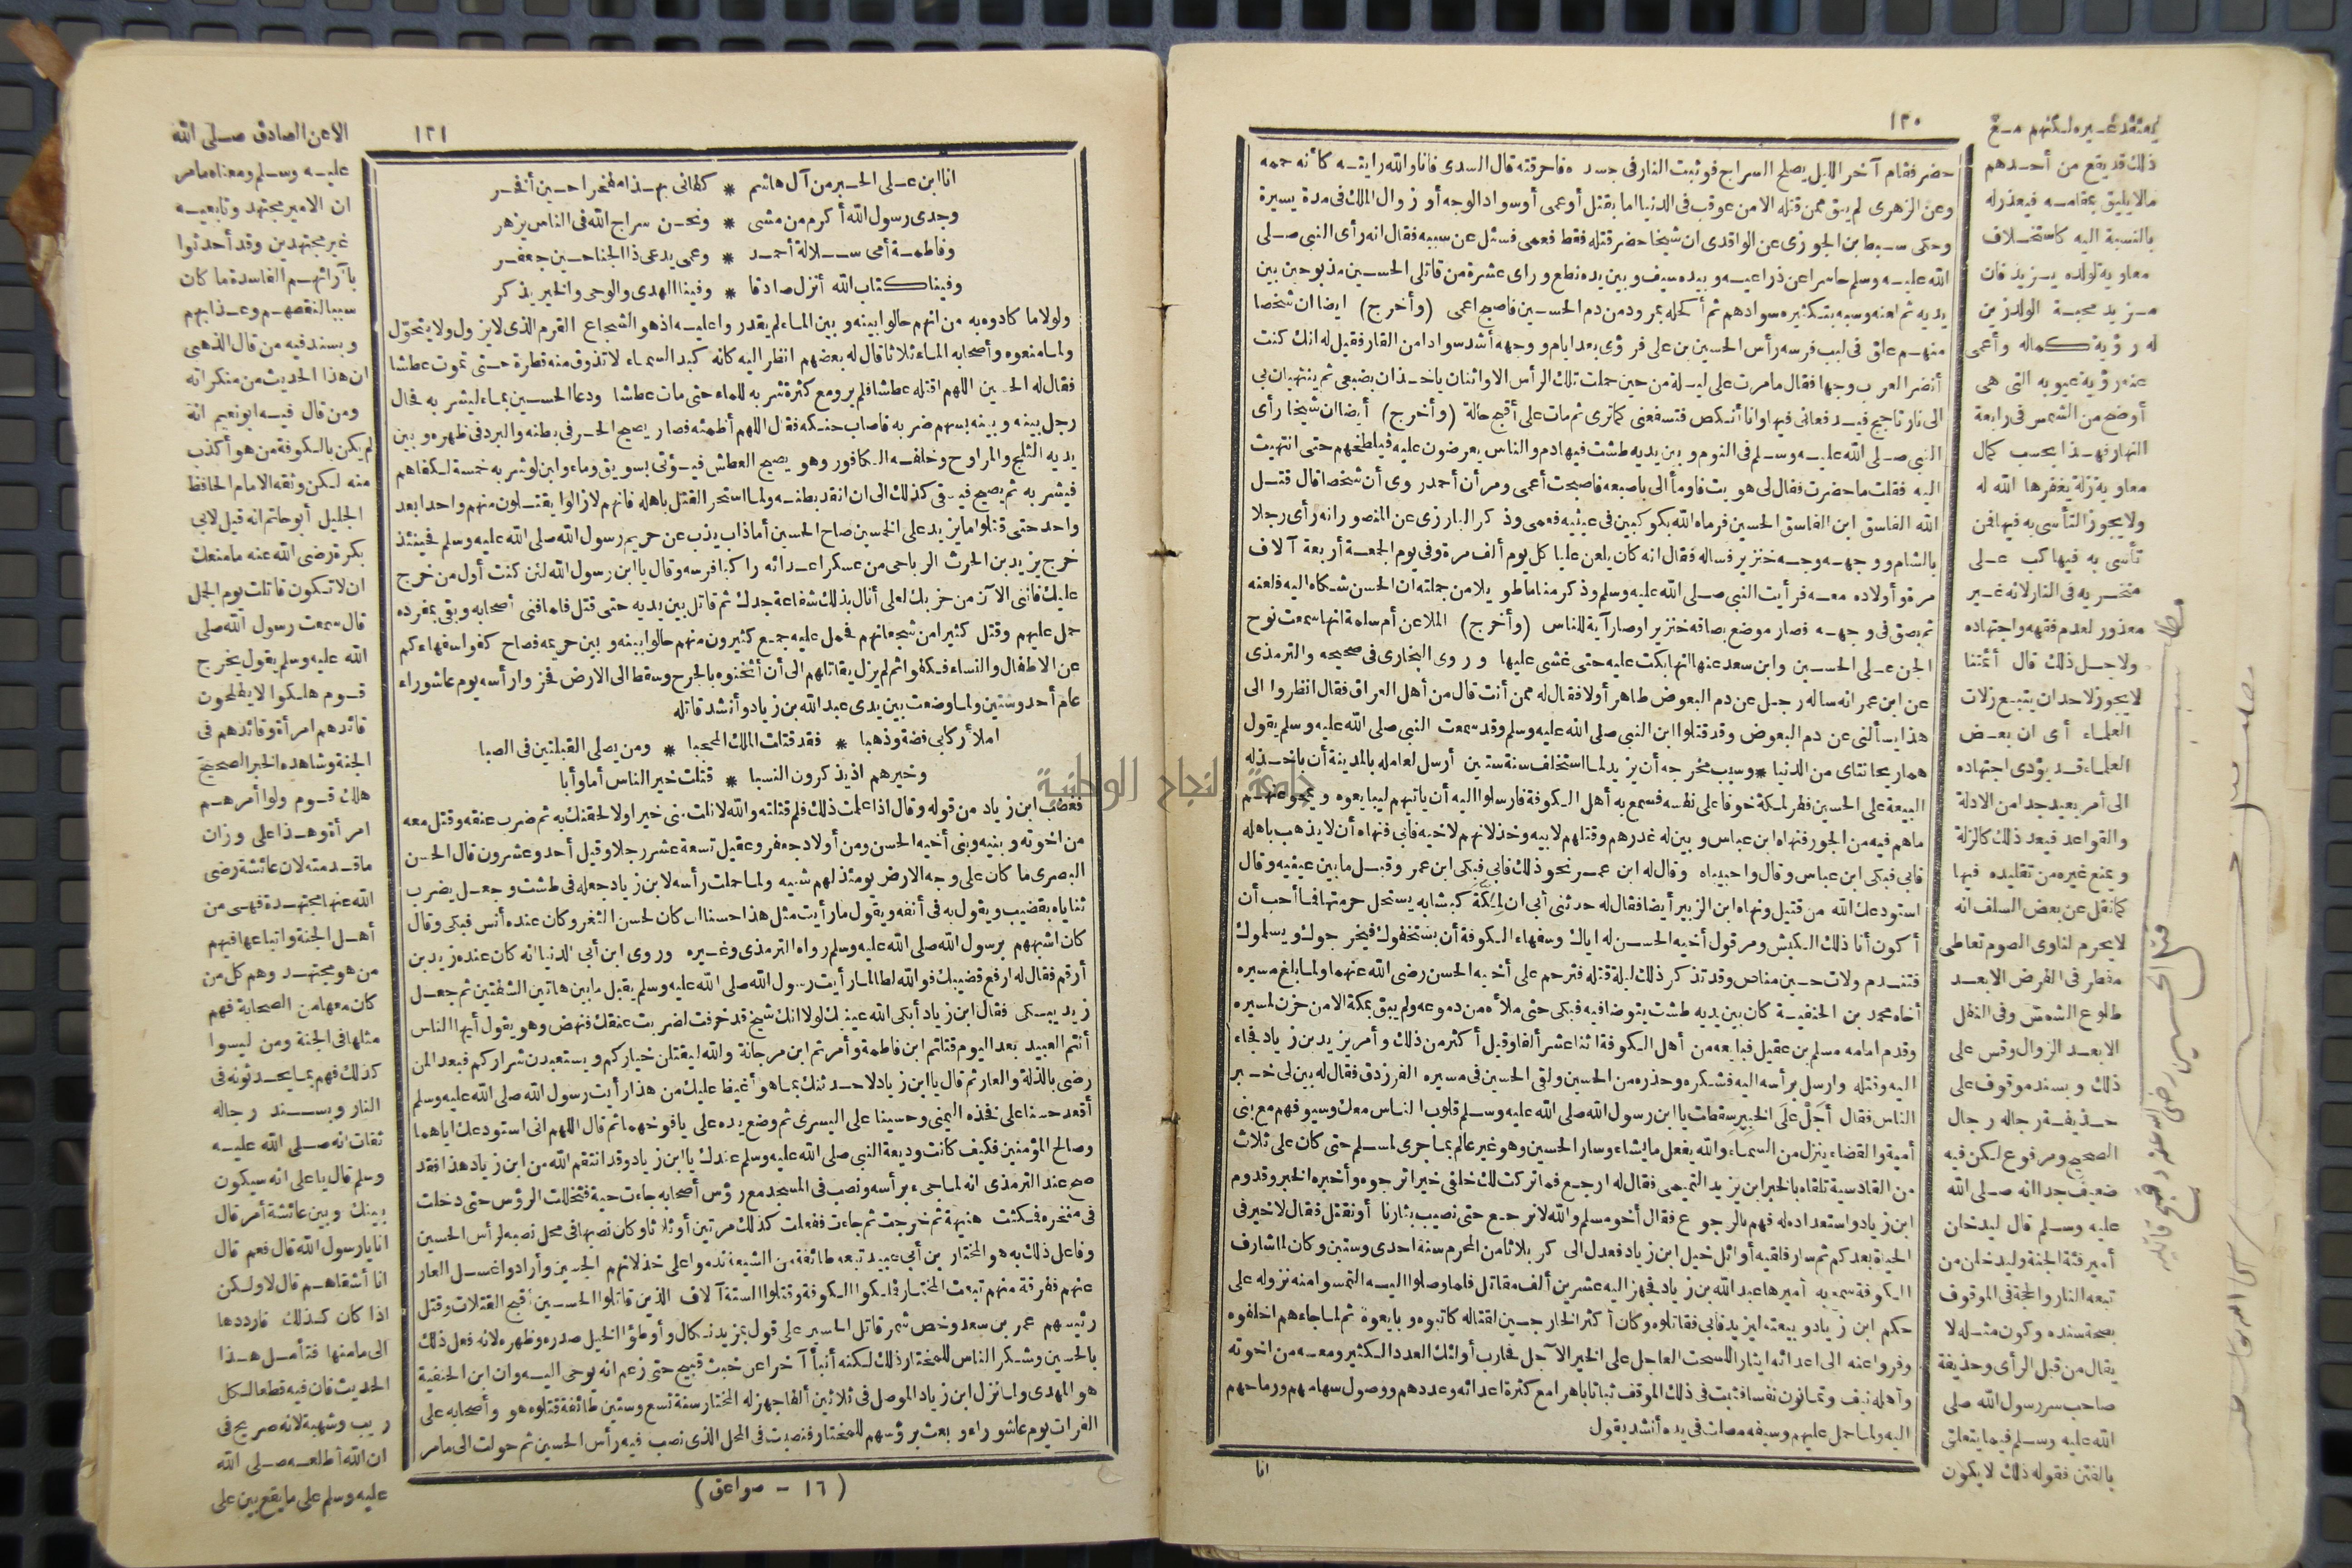 ١٢٠
حضر فقام آخر الليل يصلح السراج فوثبت النار فى جسده فاحرقته قال السدى فانا والله رايته كأنه حممه
وعن الزهرى لم يبق ممن قتله الا من عوقب فى الدنيا اما بقتل أو عمى أو سواد الوجه أو زوال الملك فى مدة يسيرة
وحكى سبط ابن الجوزى عن الواقدى ان شيخا حضر قتله فقط فعمى فسئل عن سببه فقال انه رأى النبى صلى
الله عليه وسلم حاسرا عن ذراعيه وبيده سيف وبين يديه نطع وراى عشرة من قاتلى الحسين مذبوحين بين
يديه ثم لعنه وسبه بتكثيره سوادهم ثم أكحله بمرود من دم الحسين فاصبح اعمى (وأخرج) ايضا ان شخصا
منهم علق فى لبب فرسه رأس الحسين بن على فرؤى بعد ايام ووجهه أشد سوادا من القار فقيل له انك كنت
أنضر العرب وجها فقال ما مرت على ليلة من حين حملت تلك الرأس الا واثنان ياخذان بضبعى ثم ينتهيان بى
الى نار تاجج فيدفعانى فيها وانا أنكص فتسفعنى كما ترى ثم مات على أقبح حالة (وأخرج) أيضا ان شيخا رأى
النبى صلى الله عليه وسلم فى النوم وبين يديه طشت فيها دم والناس يعرضون عليه فيلطخهم حتى انتهيت
اليه فقلت ما حضرت فقال لى هويت فاومأ الى باصبعه فاصبحت أعمى ومر أن أحمد روى أن شخصا قال قتل
الله الفاسق ابن الفاسق الحسين فرماه الله بكوكبين فى عينيه فعمى وذكر البارزى عن المنصور انه رأى رجلا
بالشام ووجهه وجه خنزير فساله فقال انه كان يلعن عليا كل يوم ألف مرة وفى يوم الجمعة أربعة آلاف
مرة وأولاده معه فرأيت النبى صلى الله عليه وسلم وذكر مناما طويلا من جملته ان الحسن شكاه اليه فلعنه
ثم بصق فى وجهه فصار موضع بصاقه خنزيرا وصار آية للناس (وأخرج) الملا عن أم سلمة انها سمعت نوح
الجن على الحسين وابن سعد عنها انها بكت عليه حتى غشى عليها وروى البخارى فى صحيحه والترمذى
عن ابن عمر انه ساله رجل عن دم البعوض طاهر أولا فقال له ممن أنت قال من أهل العراق فقال انظروا الى
هذا يسألنى عن دم البعوض وقد قتلوا ابن النبى صلى الله عليه وسلم وقد سمعت النبى صلى الله عليه وسلم يقول
هما ريحانتاى من الدنيا * وسبب مخرجه أن يزيد لما استخلف سنة ستين أرسل لعامله بالمدينة أن ياخذ له
البيعة على الحسين ففر لمكة خوفا على نفسه فسمع به أهل الكوفة فارسلوا اليه أن ياتيهم ليبايعوه ويمحو عنهم
ماهم فيه من الجور فنهاه ابن عباس وبين له غدرهم وقتلهم لابيه وخذلانهم لاخيه فابى فنهاه أن لا يذهب باهله
فابى فبكى ابن عباس وقال واحبيباه وقال له ابن عمر نحو ذلك فابى فبكى ابن عمر وقبل مابين عينيه وقال
استودعك الله من قتيل ونهاه ابن الزبير أيضا فقال له حدثنى أبى ان لمكة كبشا به يستحل حرمتها فما أحب أن
أكون أنا ذلك الكبش ومر قول أخيه الحسن له اياك وسفهاء الكوفة أن يستخفوك فيخرجوك ويسلموك
فتندم ولات حين مناص وقد تذكر ذلك ليلة قتله فترحم على أخيه الحسن رضى الله عنهما ولما بلغ مسيره
أخاه محمد بن الحنفية كان بين يديه طشت يتوضا فيه فبكى حتى ملأه من دموعه ولم يبق بمكة الا من حزن لمسيره
وقدم امامه مسلم بن عقيل فبايعه من أهل الكوفة اثنا عشر ألفا وقيل أكثر من ذلك وأمر يزيد بن زياد فجاء
اليه وقتله وارسل برأسه اليه فشكره وحذره من الحسين ولقى الحسين فى مسيره الفرزدق فقال له بين لى خبر
الناس فقال أجل على الخبير سقطت يا ابن رسول الله صلى الله عليه وسلم قلوب الناس معك وسيوفهم مع بنى
أمية والقضاء ينزل من السماء والله يفعل ما يشاء وسار الحسين وهو غير عالم بما جرى لمسلم حتى كان على ثلاث
من القادسية تلقاه بالخبر ابن يزيد التميمى فقال له ارجع فما تركت لك خلفى خيرا ترجوه وأخبره الخبر وقدوم
ابن زياد واستعداده له فهم بالرجوع فقال أخو مسلم والله لانرجع حتى نصيب بثارنا أو نقتل فقال لاخير فى
الحياة بعدكم ثم سار فلقيه أوائل خيل ابن زياد فعدل الى كربلا ثامن المحرم سنة احدى وستين وكان لما شارف
الكوفة سمع به أميرها عبد الله بن زياد فجهز اليه عشرين ألف مقاتل فلما وصلوا اليه التمسوا منه نزوله على
حكم ابن زياد وبيعته ليزيد فابى فقاتلوه وكان أكثر الخارجين لقتاله كاتبوه وبايعوه ثم لما جاءهم اخلفوه
وفروا عنه الى اعدائه ايثارا للسحت العاجل على الخير الآجل فحارب أولئك العدد الكثير ومعه من اخوته
وأهله نيف وثمانون نفسا فثبت فى ذلك الموقف ثباتا باهرا مع كثرة اعدائه وعددهم ووصول سهامهم ورماحهم
اليه ولما حمل عليهم وسيفه مصلت فى يده أنشد يقول
انا
يعتقد غيره لكنهم مع
ذلك قد يقع من أحدهم
مالا يليق بمقامه فيعذر له
بالنسبة اليه كاستخلاف
معاوية لولده يزيد فان
مزيد محبة الولد زين
له رؤية كماله وأعمى
عنه رؤية عيوبه التى هى
أوضح من الشمس فى رابعة
النهار فهذا بحسب كمال
معاوية زلة يغفرها الله له
ولا يجوز التأسى به فيها فمن
تأسى به فيها كب على
منخريه فى النار لانه غير
معذور لعدم فقهه واجتهاده
ولاجل ذلك قال أئمتنا
لا يجوز لاحد ان يتبع زلات
العلماء أى ان بعض
العلماء قد يؤدى اجتهاده
الى أمر بعيد جدا من الادلة
والقواعد فيعد ذلك كالزلة
ويمنع غيره من تقليده فيها
كما نقل عن بعض السلف انه
لا يحرم لناوى الصوم تعاطى
مفطر فى الفرض الا بعد
طلوع الشمس وفى النفل
الا بعد الزوال وقس على
ذلك وبسند موقوف على
حذيفة رجاله رجال
الصحيح ومرفوع لكن فيه
ضعيف جدا انه صلى الله
عليه وسلم قال ليدخلن
أمير فئة الجنة وليدخلن من
تبعه النار والحجة فى الموقوف
بصحة سنده وكون مثله لا
يقال من قبل الرأى وحذيفة
صاحب سر رسول الله صلى
الله عليه وسلم فيما يتعلق
بالفتن فقوله ذلك لا يكون
مطلب
قتل الحسين رضى الله عنه
جامعة النجاح الوطنية
١٢١
انا ابن على الحبر من آل هاشم * كفانى بهذا مفخرا حين أفخر
وجدى رسول الله أكرم من مشى * ونحن سراج الله فى الناس يزهر
وفاطمة أمى سلالة أحمد * وعمى يدعى ذا الجناحين جعفر
وفينا كتاب الله أنزل صادقا * وفينا الهدى والوحى والخير يذكر
ولولا ما كادوه به من انهم حالوا بينه وبين الماء لم يقدروا عليه اذ هو الشجاع القرم الذى لا يزول ولا يتحول
ولما منعوه وأصحابه الماء ثلاثا قال له بعضهم انظر اليه كانه كبد السماء لا تذوق منه قطرة حتى تموت عطشا
فقال له الحسين اللهم اقتله عطشا فلم يرو مع كثرة شربه للماء حتى مات عطشا ودعا الحسين بماء ليشربه فحال
رجل بينه وبينه بسهم ضربه فاصاب حنكه فقال اللهم أظمئه فصار يصيح الحر فى بطنه والبرد فى ظهره وبين
يديه الثلج والمراوح وخلفه الكافور وهو يصيح العطش فيؤتى بسويق وماء ولبن لو شربه خمسة لكفاهم
فيشربه ثم يصيح فيسقى كذلك الى ان انقد بطنه ولما استحر القتل باهله فانهم لازالوا يقتلون منهم واحدا بعد
واحد حتى قتلوا ما يزيد على الخمسين صاح الحسين أما ذاب يذب عن حريم رسول الله صلى الله عليه وسلم فحينئذ
خرج يزيد بن الحرث الرياحى من عسكر اعدائه راكبا فرسه وقال يا ابن رسول الله لئن كنت أول من خرج
عليك فاننى الآن من حزبك لعلى أنال بذلك شفاعة جدك ثم قاتل بين يديه حتى قتل فلما فنى أصحابه وبقى بمفرده
حمل عليهم وقتل كثيرا من شجعانهم فحمل عليه جمع كثيرون منهم حالوا بينه وبين حريمه فصاح كفوا سفهاءكم
عن الاطفال والنساء فكفوا ثم لم يزل يقاتلهم الى أن أثخنوه بالجرح وسقط الى الارض فحزوا رأسه يوم عاشوراء
عام أحد وستين ولما وضعت بين يدى عبد الله بن زياد وأنشد قاتله
املأ ركابى فضة وذهبا * فقد قتلت الملك المحجبا * ومن يصلى القبلتين فى الصبا
وخيرهم اذ يذكرون النسبا * قتلت خير الناس أما وأبا
فغضب ابن زياد من قوله وقال اذا علمت ذلك فلم قتلته والله لا نلت منى خيرا ولالحقنك به ثم ضرب عنقه وقتل معه
من اخوته وبنيه وبنى أخيه الحسن ومن أولاد جعفر وعقيل تسعة عشر رجلا وقيل أحد وعشرون قال الحسن
البصرى ما كان على وجه الارض يومئذ لهم شبيه ولما حملت رأسه لابن زياد جعله فى طشت وجعل يضرب
ثناياه بقضيب ويقول به فى أنفه ويقول ما رأيت مثل هذا حسنا ان كان لحسن الثغر وكان عنده أنس فبكى وقال
كان اشبههم برسول الله صلى الله عليه وسلم رواه الترمذى وغيره وروى ابن أبى الدنيا انه كان عنده زيد بن
أرقم فقال له ارفع قضيبك فوالله لطالما رأيت رسول الله صلى الله عليه وسلم يقبل مابين هاتين الشفتين ثم جعل
زيد يبكى فقال ابن زياد أبكى الله عينيك لولا انك شيخ قد خرفت لضربت عنقك فنهض وهو يقول أيها الناس
أنتم العبيد بعد اليوم قتلتم ابن فاطمة وأمرتم ابن مرجانة والله ليقتلن خياركم ويستعبدن شراركم فبعدا لمن
رضى بالذلة والعار ثم قال يا ابن زياد لاحدثنك بما هو أغيظ عليك من هذا رأيت رسول الله صلى الله عليه وسلم
أقعد حسنا على فخذه اليمنى وحسينا على اليسرى ثم وضع يده على يافوخهما ثم قال اللهم انى استودعك اياهما
وصالح المؤمنين فكيف كانت وديعة النبى صلى الله عليه وسلم عندك يا ابن زياد وقد انتقم الله من ابن زياد هذا فقد
صح عند الترمذى انه لما جىء برأسه ونصب فى المسجد مع رؤس أصحابه جاءت حية فتخللت الرؤس حتى دخلت
فى منخره فمكثت هنيهة ثم خرجت ثم جاءت ففعلت كذلك مرتين أو ثلاثا وكان نصبها فى محل نصبه لرأس الحسين
وفاعل ذلك به هو المختار بن أبى عبيد تبعه طائفة من الشيعة ندموا على خذلانهم الحسين وأرادوا غسل العار
عنهم ففرقة منهم تبعت المختار فملكوا الكوفة وقتلوا الستة آلاف الذين قاتلوا الحسين أقبح القتلات وقتل
رئيسهم عمر بن سعد وخص شمر قاتل الحسين على قول بمزيد نكال وأوطؤا الخيل صدره وظهره لانه فعل ذلك
بالحسين وشكر الناس للمختار ذلك لكنه أنبأ آخرا عن خبث قبيح حتى زعم انه يوحى اليه وان ابن الحنفية
هو المهدى ولما نزل ابن زياد الموصل فى ثلاثين ألفا جهز له المختار سنة تسع وستين طائفة قتلوه هو وأصحابه على
الفرات يوم عاشوراء وبعث برؤسهم للمختار فنصبت فى المحل الذى نصب فيه رأس الحسين ثم حولت الى مامر
(١٦ - صواعق)
الا عن الصادق صلى الله
عليه وسلم ومعناه مامر
ان الامير مجتهد وتابعيه
غير مجتهدين وقد أحدثوا
بآرائهم الفاسدة ما كان
سببا لنقصهم وعذابهم
وبسند فيه من قال الذهبى
ان هذا الحديث من منكراته
ومن قال فيه ابو نعيم انه
لم يكن بالكوفة من هو أكذب
منه لكن وثقه الامام الحافظ
الجليل أبو حاتم انه قيل لابى
بكرة رضى الله عنه ما منعك
ان لا تكون قاتلت يوم الجمل
قال سمعت رسول الله صلى
الله عليه وسلم يقول يخرج
قوم هلكوا لا يفلحون
قائدهم امرأة وقائدهم فى
الجنة وشاهده الخبر الصحيح
هلك قوم ولوا أمرهم
امرأة وهذا على وزان
ما قدمته لان عائشة رضى
الله عنها مجتهدة فهى من
أهل الجنة واتباعها فيهم
من هو مجتهد وهم كل من
كان معها من الصحابة فهم
مثلها فى الجنة ومن ليسوا
كذلك فهم بما يحدثونه فى
النار وبسند رجاله
ثقات انه صلى الله عليه
وسلم قال يا على انه سيكون
بينك وبين عائشة أمر قال
انا يا رسول الله قال فعم قال
انا أشقاهم قال لا ولكن
اذا كان كذلك فارددها
الى مامنها فتأمل هذا
الحديث فان فيه قطعا لكل
ريب وشبهة لانه صريح فى
ان الله أطلعه صلى الله
عليه وسلم على ما يقع بين على